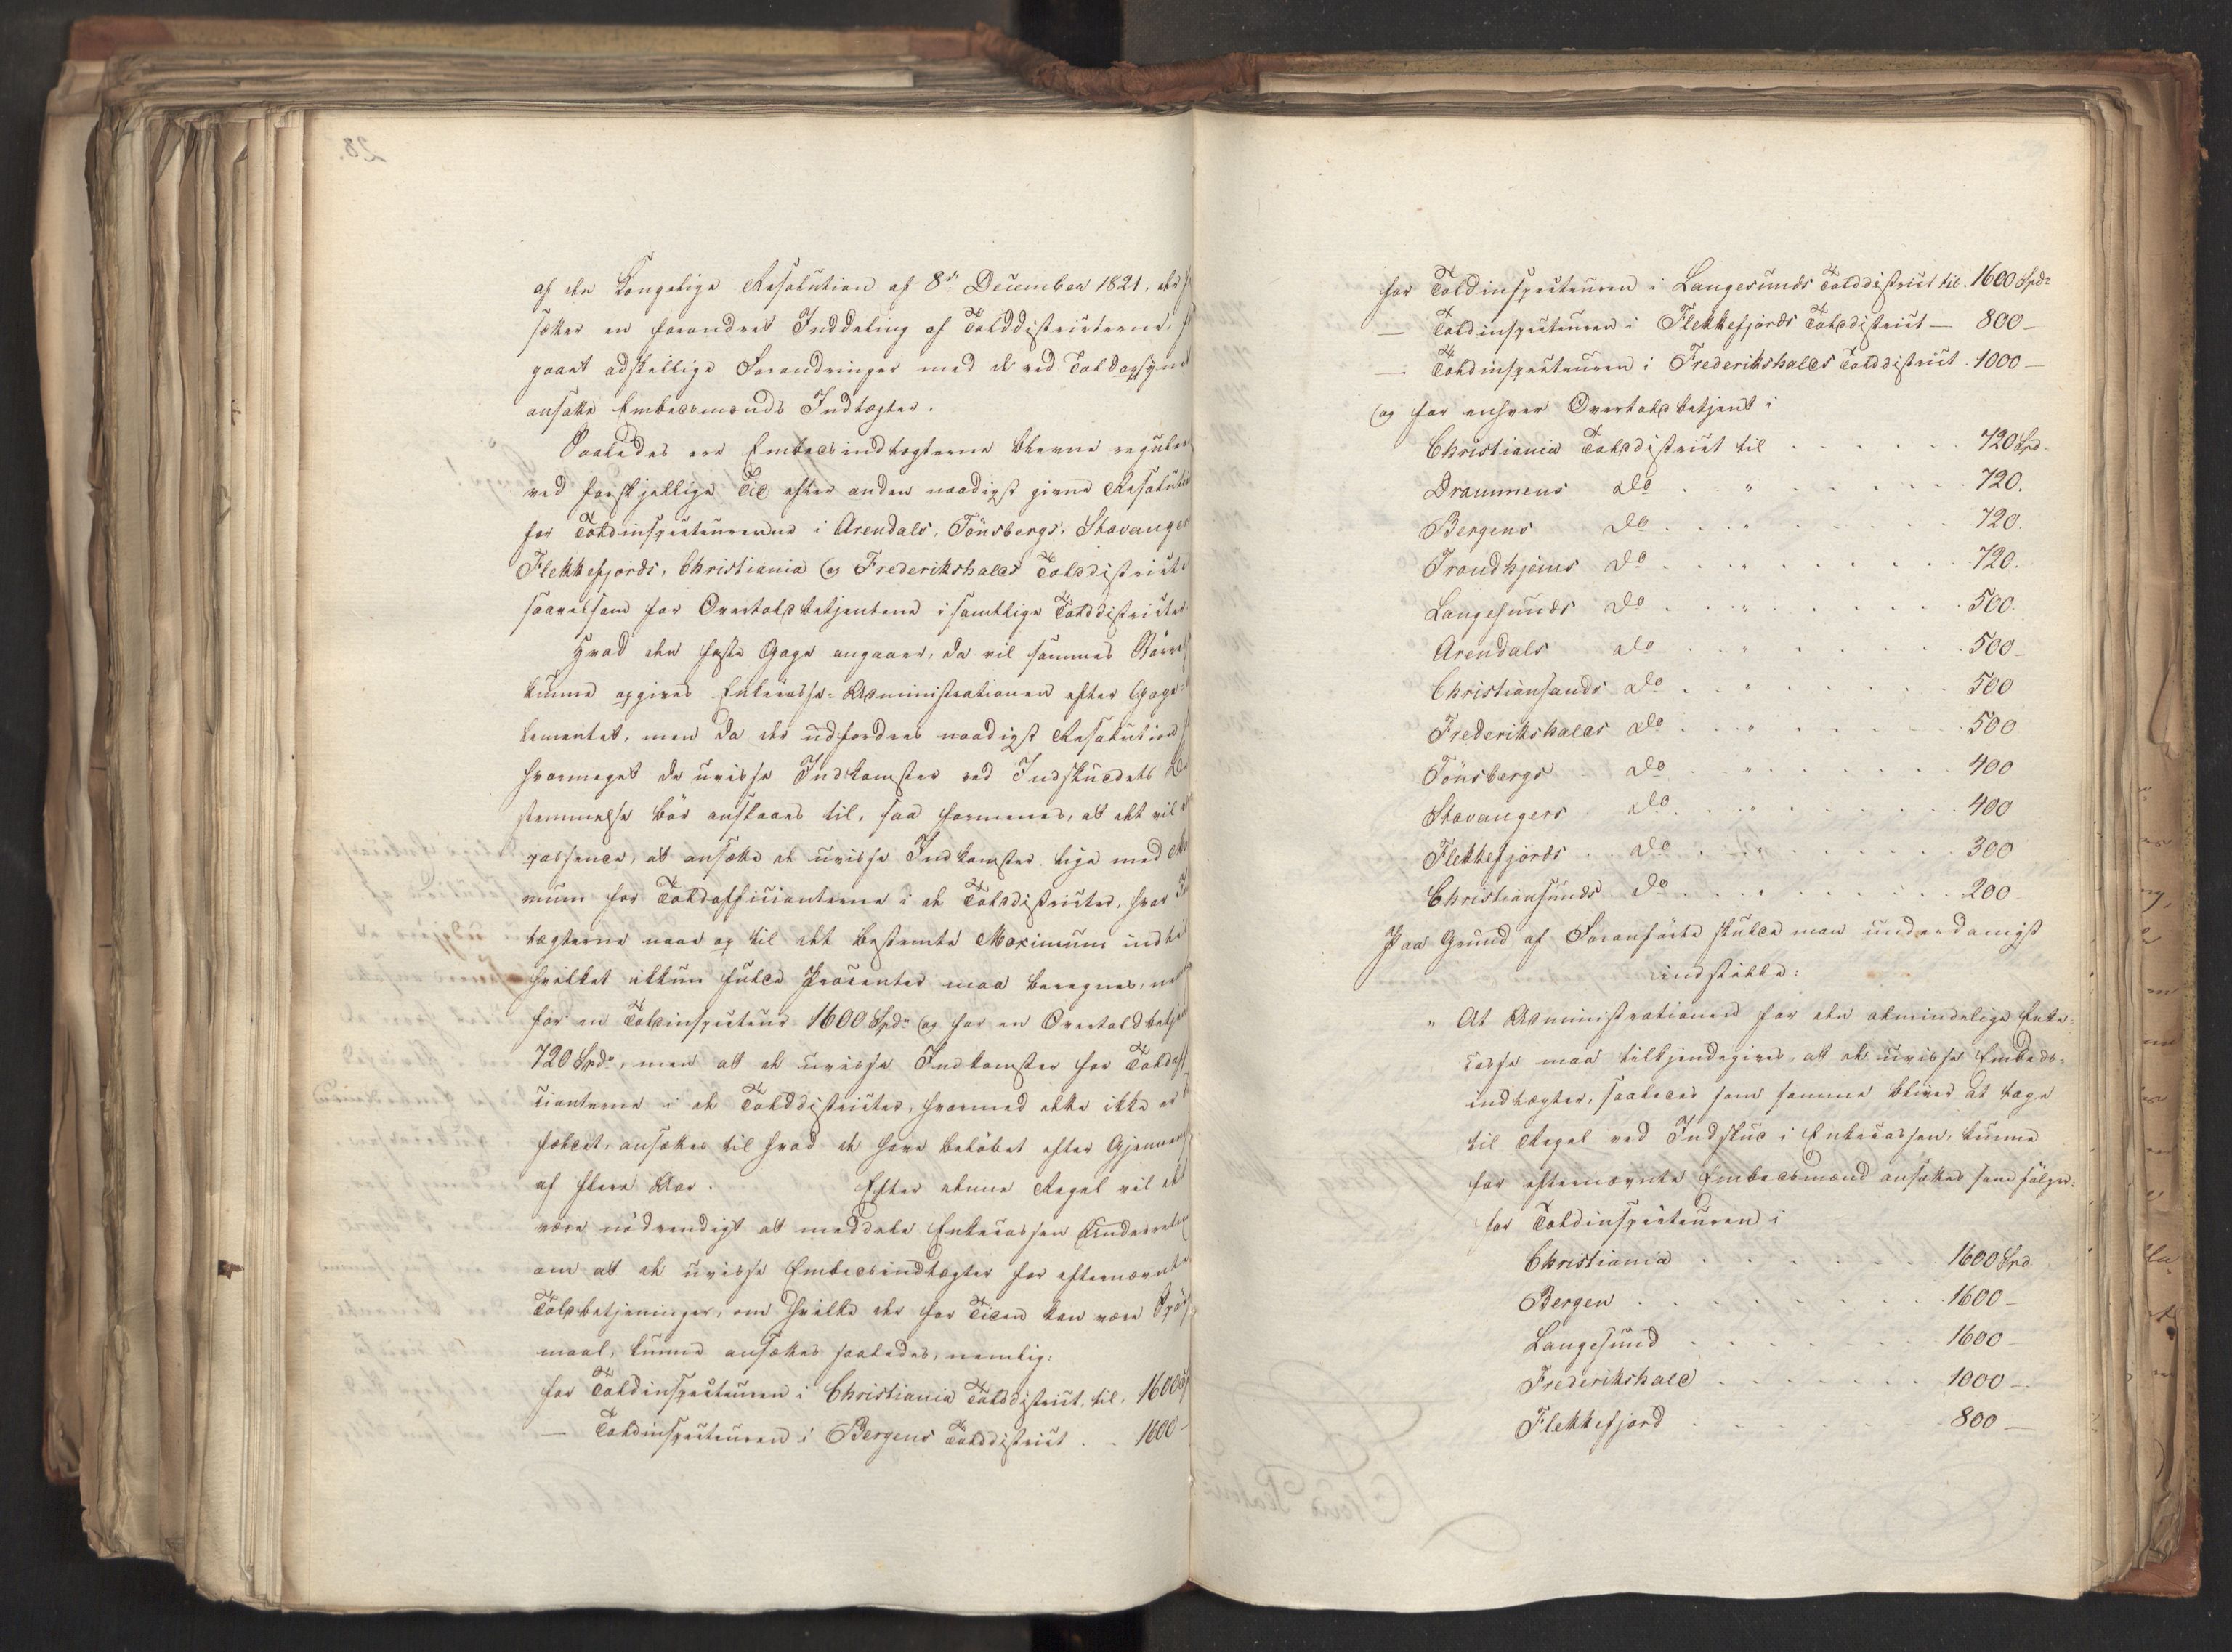 af den Kongelige Resolution af 8de December 1821, der
sætter en forandret Inddeling af Tolddistricterne,
gaaet adskillige Forandringer med de ved Toldopsynet
ansatte Embedsmænds Indtægter.
Saaledes ere Embedsindtægterne blevne reguler
ved forskjellige Tid efter anden naadigst givne Resolution
for Toldinspecteurerne i Arendals, Tönsbergs, Stavanger
Flekkefjords, Christiania og Frederikshalds Tolddistricter
saavelsom for Overtoldbetjentene i samtlige Tolddistricter
Hvad den faste Gage angaaer, da vil sammes Större
kunne opgives Enkecasse-Administrationen efter Gage-
lementet, men da det udfordres naadigst Resolution
hvormeget de uvisse Indkomster ved Indskuddets Be
stemmelse bör anslaaes til, saa formenes, at det vil
passende, at ansætte de uvisse Indkomster lige med Ma
mum for Toldofficianterne i de Tolddistricter, hvor In
tægterne naae op til det bestemte Maximum indtil
hvilket alkun fulde Procenter maa beregnes,
for en Toldinspecteur 1600 Spdr og for en Overtoldbetjent
720 Spdr, men at de uvisse Indkomster for Toldoffi
cianterne i de Tolddistricter, hvormed dette ikke er
fældet, ansættes til hvad de have belöbet efter Gjennems
af flere Aar. Efter denne Regel vil det
være nödvendigt at meddele Enkecassen Underretn
om at de uvisse Embedsindtægter for efternævnte
Toldbetjeninger, om hvilke der for Tiden kan være Spörs
maal, kunne ansættes saaledes, nemlig:
for Toldinspecteuren i Christiania Tolddistrict, til. 1600 Sp
— Toldinspecteuren i Bergens Tolddistrict . . 1600 –
for Toldinspecteuren i Langesunds Tolddistrict til. 1600 Spdr
— Toldinspecteuren i Flekkefjords Tolddistrict — 800 –
— Toldinspecteuren i Frederikshalds Tolddistrict . 1000 —
og for enhver Overtoldbetjent i
Christiania Tolddistrict til . . . . . . 720 Spd.
Drammens do . . " . . . . . . 720.
Bergens do . . " . . . . . . 720.
Trondhjems do . . " . . . . . . 720.
Langesunds do . . " . . . . . . 500.
Arendals do . . " . . . . . . 500 –
Christiansands do . . " . . . . . . 500
Frederikshalds do . . " . . . . . . 500
Tönsbergs do . . " . . . . . . 400
Stavangers do . . " . . . . . . 400
Flekkefjords do . . " . . . . . . 300
Christiansunds do . . " . . . . . . 200
Paa Grund af Foranförte skulde man underdanigst
indstille:
" At Administrationen for den almindelige Enke-
casse maa tilkjendegives, at de uvisse Embeds-
indtægter, saaledes som samme bliver at tage
til Regel ved Indskud i Enkecassen, kunne
for efternævnte Embedsmænd ansættes som fölger:
for Toldinspecteuren i
Christiania . . . . . . 1600 Spd
Bergen . . . . . . . . 1600 –
Langesund . . . . . . . 1600 –
Frederikshald . . . . . . 1000 —
Flekkefjord . . . . . . 800 —